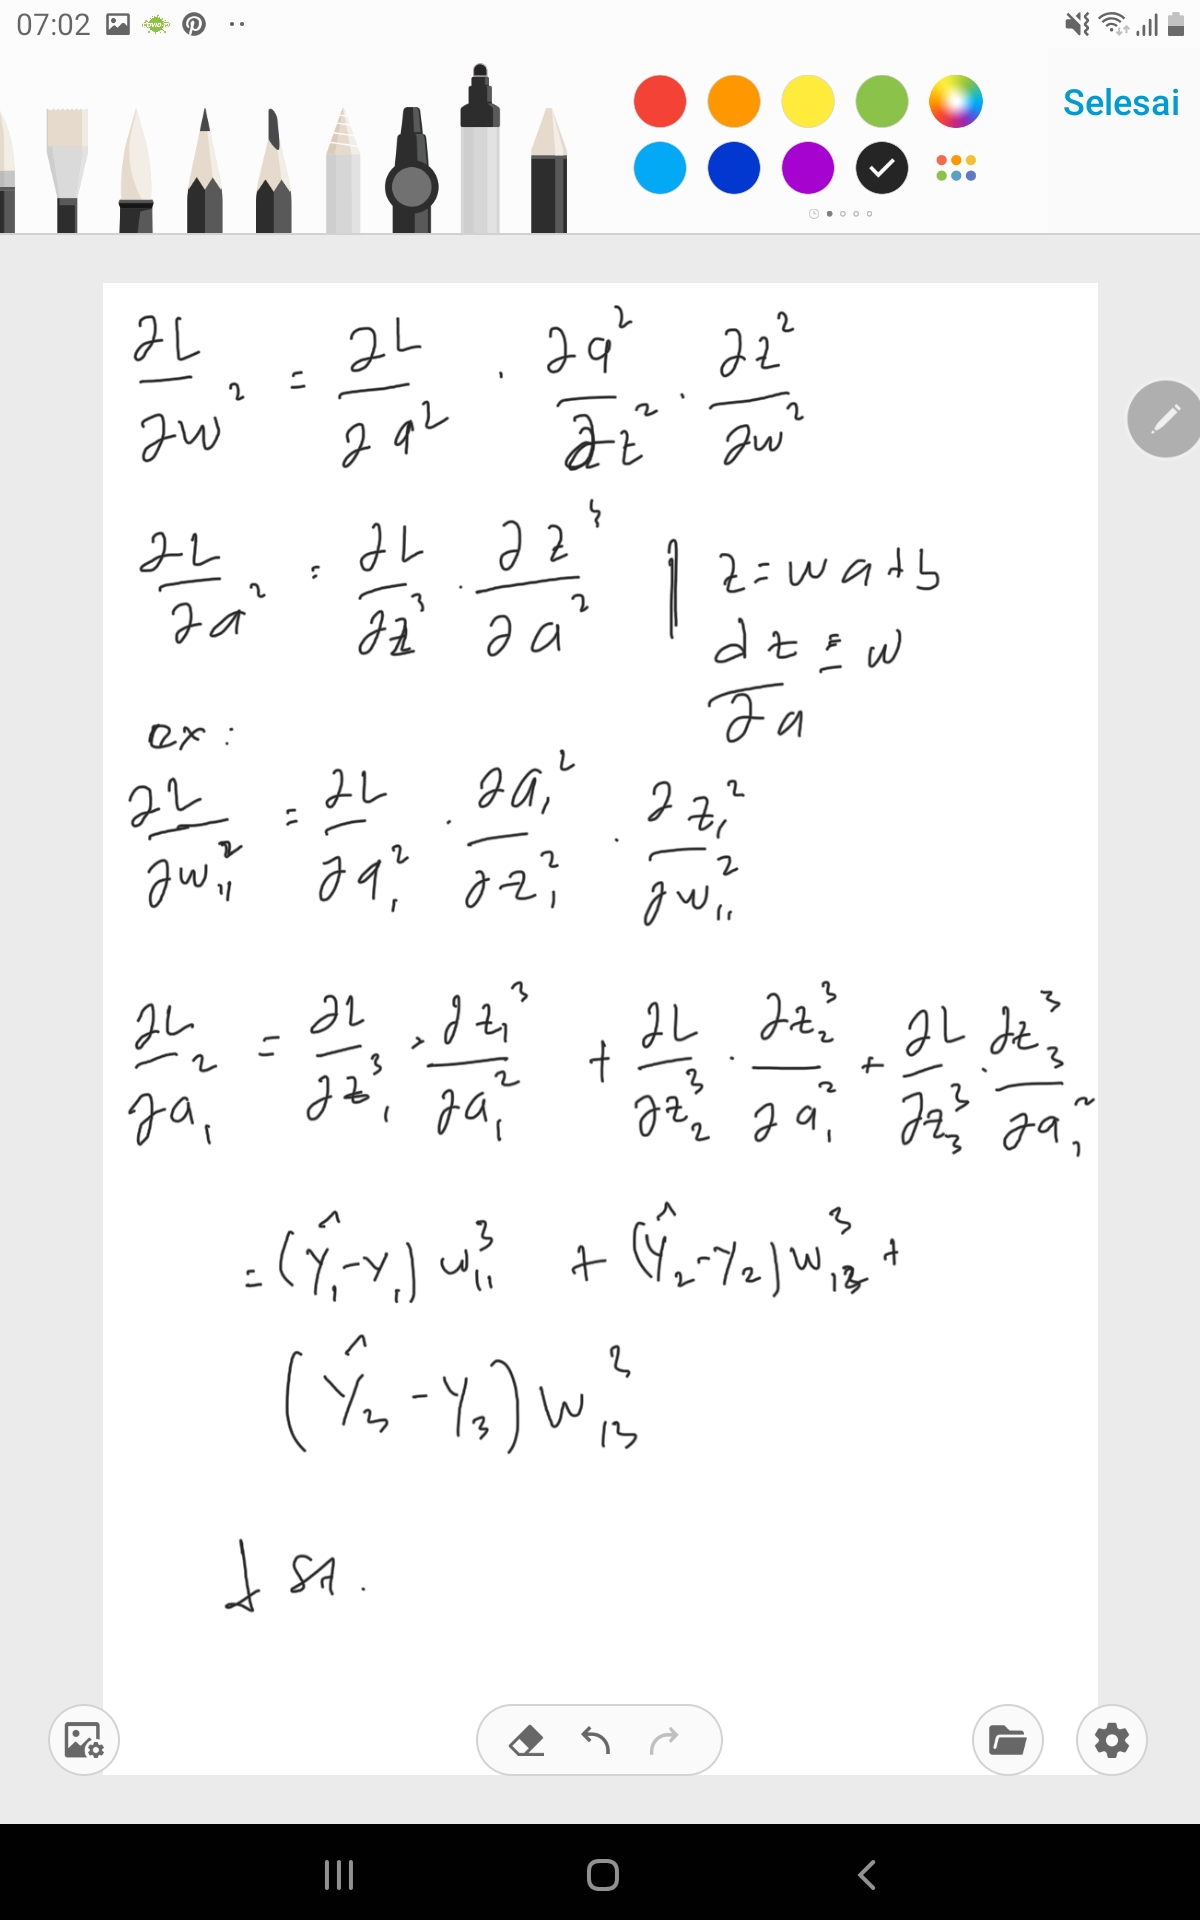 07:02
Selesai
∂L/∂w² = ∂L/∂a² · ∂a²/∂z² · ∂z²/∂w²
∂L/∂a² = ∂L/∂z³ · ∂z³/∂a² | z = wa+b
dz/∂a = w
ex:
∂L/∂w₁₁² = ∂L/∂a₁² · ∂a₁²/∂z₁² · ∂z₁²/∂w₁₁²
∂L/∂a₁² = ∂L/∂z₁³ · ∂z₁³/∂a₁² + ∂L/∂z₂³ · ∂z₂³/∂a₁² + ∂L/∂z₃³ · ∂z₃³/∂a₁²
= (ŷ₁-y₁) w₁₁³ + (ŷ₂-y₂) w₁₂³ +
(ŷ₃-y₃) w₁₃³